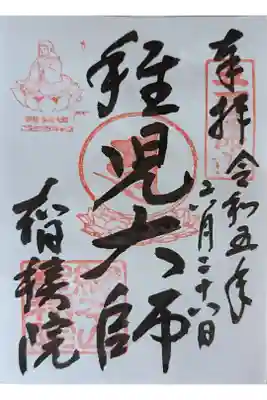 奉拝 令和五年
六月二十八日
稚児大師
智積院